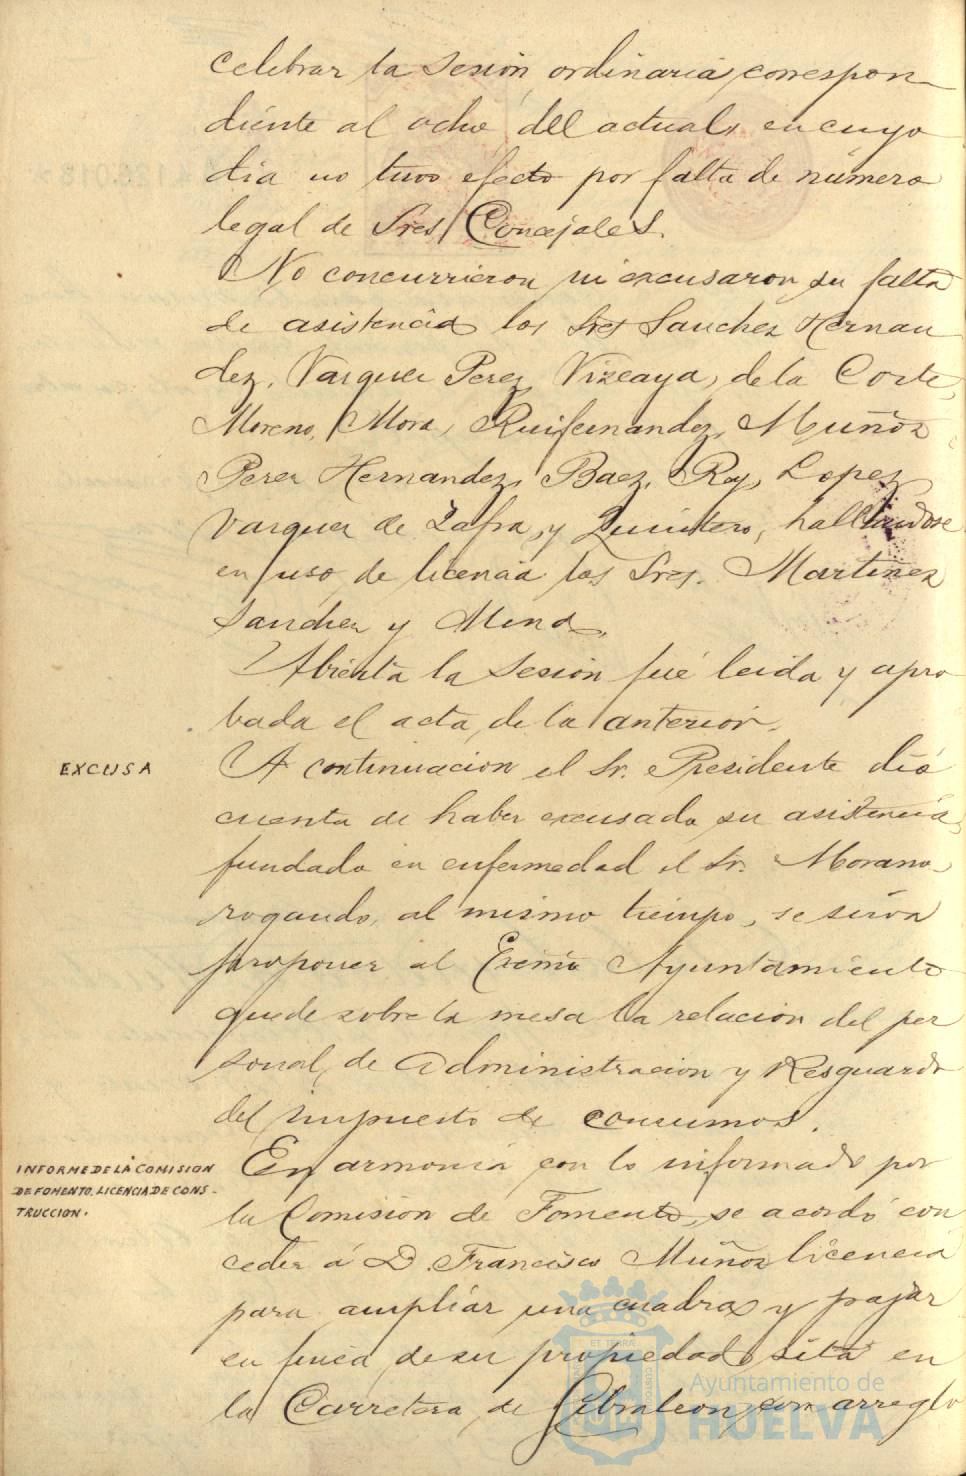 celebrar la Sesión ordinaria, correspon
diente al ocho del actual, en cuyo
dia no tuvo efecto por falta de número
legal de Sres. Concejales.
No concurrieron ni excusaron su falta
de asistencia los Sres Sanchez Hernan
dez, Vazquez Perez, Vizcaya, de la Corte,
Moreno, Mora, Ruifernandez, Muñoz
Perez Hernandez, Baez, Roy, Lopez,
Vazquez de Zafra, y Quintero, hallandose
en uso de licencia los Sres. Martinez
Sanchez y Mena.
Abierta la Sesión fué leida y apro
bada el acta de la anterior.
EXCUSA
A continuacion el Sr. Presidente dió
cuenta de haber excusado su asistencia,
fundado en enfermedad el Sr. Morano,
rogando, al mismo tiempo, se sirva
proponer al Excmo Ayuntamiento
quede sobre la mesa la relacion del per
sonal, de Administracion y Resguardo
del impuesto de consumos.
INFORME DE LA COMISION
DE FOMENTO. LICENCIA DE CONS-
TRUCCION.
En armonia con lo informado por
la Comision de Fomento, se acordó con
ceder á D. Francisco Muñoz licencia
para ampliar una cuadra y pajar
en finca de su propiedad sita en
la Carretera de Gibraleon, con arreglo
Ayuntamiento de
HUELVA